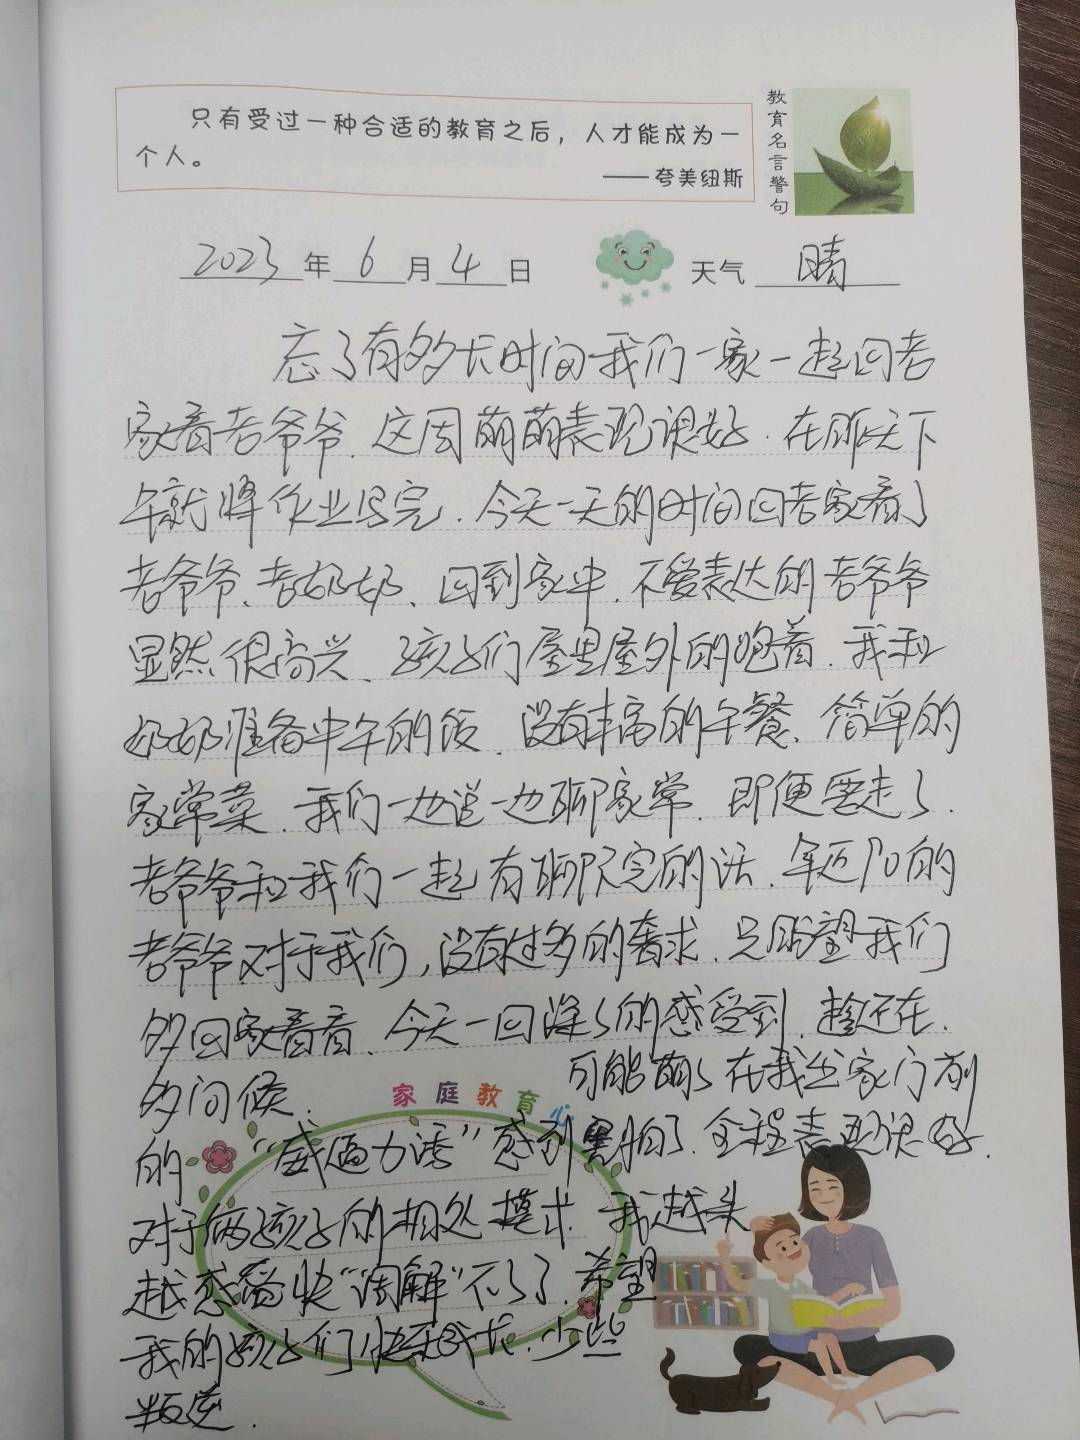 只有受过一种合适的教育之后，人才能成为一
个人。
——夸美纽斯
教育名言警句
2023年6月4日 天气 晴
忘了有多长时间我们一家一起回老
家看老爷爷.这周萌萌表现很好.在昨天下
午就将作业写完.今天一天的时间回老家看了
老爷爷、老奶奶、回到家中.不爱表达的老爷爷
显然很高兴、孩子们屋里屋外的跑着.我和
奶奶准备中午的饭.没有丰富的午餐、简单的
家常菜.我们一边说一边聊家常.即便要走了.
老爷爷和我们一起有聊不完的话.年近90的
老爷爷对于我们,没有过多的奢求.只盼望我们
多回家看看、今天一回深深的感受到.趁还在.
多问候.
家庭教育心
可能萌萌在我出家门前
的“威逼力诱”感到害怕了.全程表现很好.
对于俩孩子的相处模式.我越来
越感觉快“调解”不了了.希望
我的孩子们快乐成长.少些
叛逆.